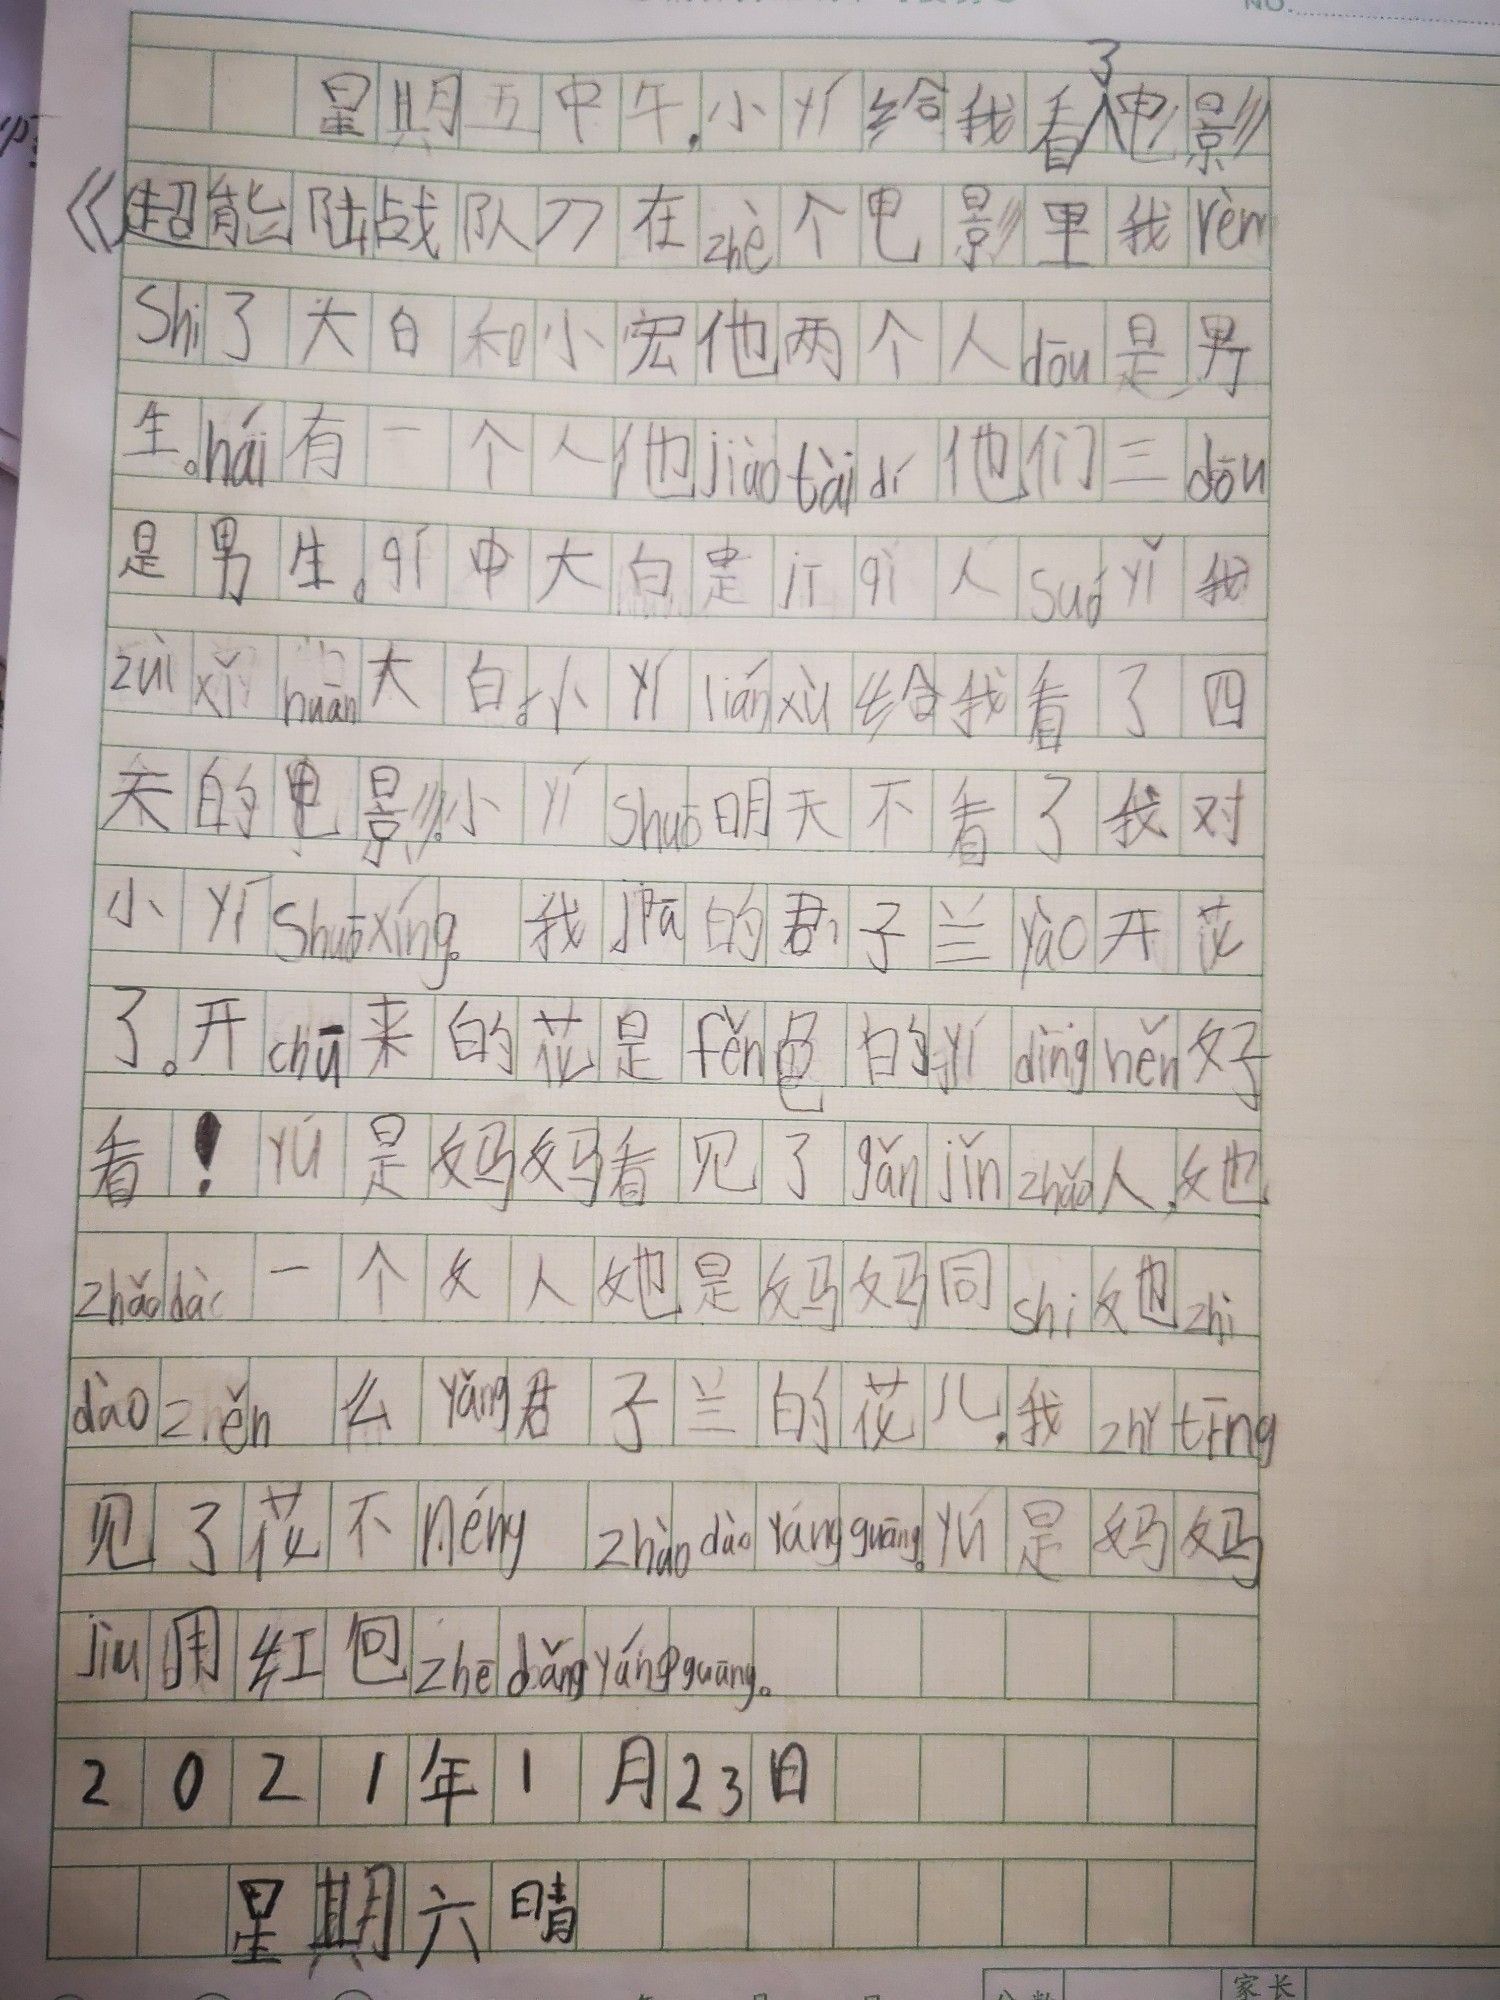 NO.
星期五中午,小yí给我看了电影
《超能陆战队》在zhè个电影里我rèn
shi了大白和小宏他两个人dōu是男
生。hái有一个人他jiào tài dí他们三dōu
是男生。qí中大白是jī qì人suó yǐ我
zuì xǐ huān大白。小yí lián xù给我看了四
天的电影。小yí shuō明天不看了我对
小yí shuō xíng。我jiā的君子兰yào开花
了。开chū来的花是fěn色的,yí dìng hěn好
看!yú是妈妈看见了gǎn jǐn zhǎo人,她
zhǎo dào一个女人她是妈妈同shì她zhī
dào zěn么yǎng君子兰的花儿,我zhǐ tīng
见了花不néng zhào dào yáng guāng。yú是妈妈
jiù用红包zhē dǎng yáng guāng。
2021年1月23日
星期六晴
家长